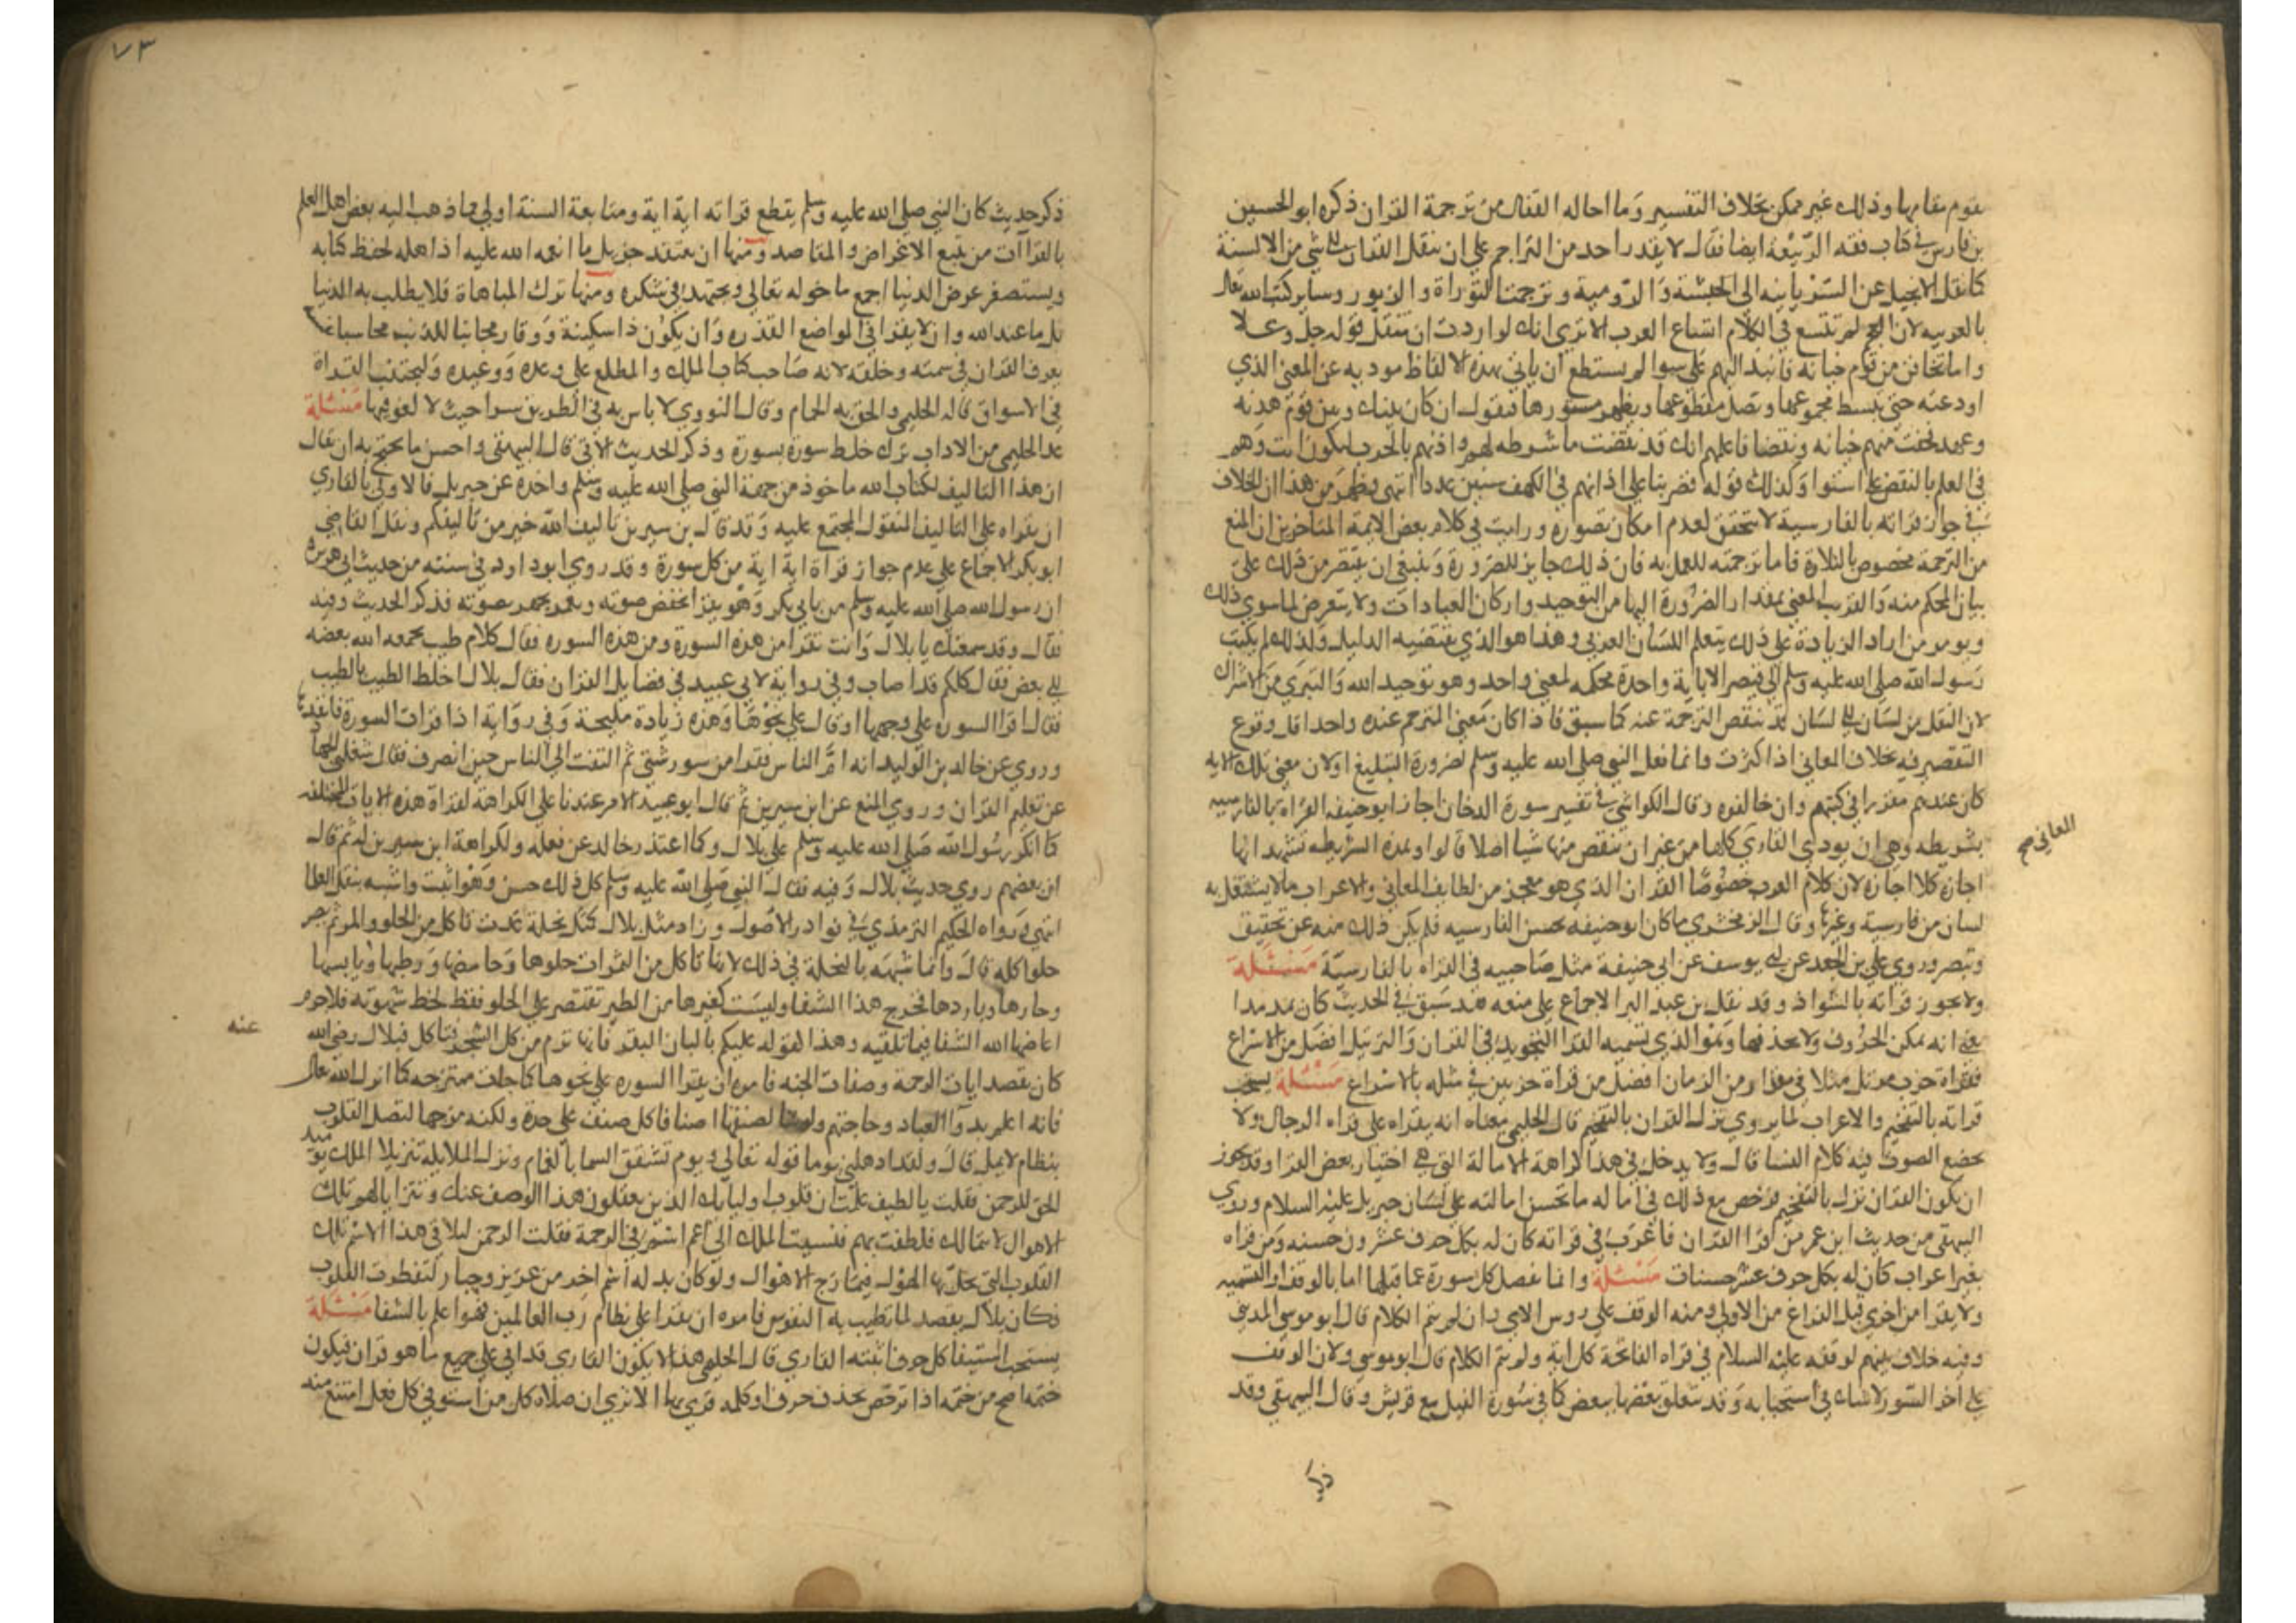 يقوم مقامها وذلك غير ممكن بخلاف التفسير وما احاله القفال من ترجمة القران ذكره ابو الحسين
بن فارس في كتاب فقه العربية ايضا فقال لا يقدر احد من التراجم على ان ينقل القران الى شي من الالسنة
كما نقل الانجيل عن السريانيه الى الحبشة والرومية وترجمت التوراة والزبور وساير كتب الله تعالى
بالعربيه لان العجم لم تتسع في الكلام اتساع العرب الا تري انك لو اردت ان تنقل قوله جل وعلا
واما تخافن من قوم خيانه فانبذ اليهم على سوا لم يستطع ان ياتي بهذه الالفاظ موديه عن المعنى الذي
اودعته حتى تبسط مجموعها وتصل مقطوعها ويظهر مستورها فيقول ان كان بينك وبين قوم هدنه
وعهد فخفت منهم خيانه ونقضا فاعلمهم انك قد نقضت ما شرطه لهم واذنهم بالحرب لتكون انت وهم
في العلم بالنقض على استوا وكذلك قوله فضربنا على اذانهم في الكهف سنين عددا انتهى فظهر من هذا ان الخلاف
في جواز قراته بالفارسية لا يتحقق لعدم امكان تصوره ورايت في كلام بعض الايمة المتاخرين ان المنع
من الترجمة مخصوص بالتلاوة فاما ترجمته للعمل به فان ذلك جايز للضرورة وينبغي ان يقتصر من ذلك على
بيان المحكم منه والقريب المعني بمقدار الضرورة اليها من التوحيد واركان العبادات ولا يتعرض لما سوي ذلك
ويومر من اراد الزيادة علي ذلك بتعلم اللسان العربي وهذا هو الذي يقتضيه الدليل ولذلك لم يكتب
رسول الله صلى الله عليه وسلم الى قيصر الا باية واحدة محكمه لمعنى واحد وهو توحيد الله والتبري من الاشراك
لان النقل من لسان الى لسان قد ينقص الترجمة عنه كما سبق فاذا كان معنى المترجم عنده واحدا قل وقوع
التقصير فيه بخلاف المعاني اذا كثرت وانما فعل النبي صلى الله عليه وسلم لضرورة التبليغ اولان معنى تلك الايه
كان عندهم مقررا في كتبهم وان خالفوه وقال الكواشي في تفسير سورة الدخان اجاز ابو حنيفه القراه بالفارسيه
بشريطه وهى ان يودي القاري كلها من غير ان ينقص منها شيا اصلا قالوا وهذه الشريطه تشهد انها
المعاني صح
اجازه كلا اجازه لان كلام العرب خصوصا القران الذي هو معجز من لطايف المعاني والاعراب ما لا يستقل به
لسان من فارسية وغيرها وقال الزمخشري ما كان ابو حنيفه يحسن الفارسيه فلم يكن ذلك منه عن تحقيق
وتبصر وروي علي بن الجعد عن ابي يوسف عن ابي حنيفة مثل صاحبيه في القراه بالفارسيّة مسئلة
ولا يجوز قراته بالشواذ وقد نقل بن عبد البر الاجماع على منعه فقد سبق في الحديث كان يمد مدا
يعني انه يمكن الحروف ولا يحذفها وهو الذي تسميه القرا التجويد في القران والترتيل افضل من الاسراع
فقراة حزب مرتل مثلا في مقدار من الزمان افضل من قراة حزبين في مثله بالاسراع مسئلة يستحب
قراته بالتفخيم والاعراب لما يروي نزل القران بالتفخيم قال الحليمي معناه انه يقراه على قراه الرجال ولا
يخضع الصوت فيه ككلام النسا قال ولا يدخل في هذا كراهة الامالة التى هى اختيار بعض القرا وقد يجوز
ان يكون القران نزل بالتفخيم فرخص مع ذلك في اماله ما تحسن امالته على لسان جبريل عليه السلام وروي
البيهقي من حديث ابن عمر من قرا القران فاعرب في قراته كان له بكل حرف عشرون حسنه ومن قراه
بغير اعراب كان له بكل حرف عشر حسنات مسئلة وانما نفصل كل سورة عما قبلها اما بالوقف او التسميه
ولا يقرا من اخري قبل الفراغ من الاولى ومنه الوقف علي روس الاي وان لم يتم الكلام قال ابو موسي المديني
وفيه خلاف بينهم لوقفه عليه السلام في قراه الفاتحة كل اية ولم يتم الكلام قال ابو موسي ولان الوقف
علي اخر السور لا شك في استحبابه وقد يتعلق بعضها ببعض كما في سورة الفيل مع قريش وقال البيهقي وقد
ذكر
٧٣
ذكر حديث كان النبي صلى الله عليه وسلم يقطع قراته اية اية ومتابعة السنة اولي مما ذهب اليه بعض اهل العلم
بالقراآت من تتبع الاغراض والمقاصد ومنها ان يعتقد جزيل ما انعم الله عليه اذ اهله لحفظ كتابه
ويستصغر عرض الدنيا اجمع ما خوله تعالى ويجتهد في شكره ومنها ترك المباهاة فلا يطلب به الدنيا
بل ما عند الله وان لا يقرا في المواضع القذره وان يكون ذا سكينة ووقار مجانبا للذنب محاسبا
يعرف القران في سمته وخلقه لانه صاحب كتاب الملك والمطلع على وعده ووعيده وليجتنب القراة
في الاسواق قاله الحليمي والحق به الحمام وقال النووي لا باس به في الطريق سرا حيث لا لغو فيها مسئلة
عد الحليمي من الاداب ترك خلط سورة بسورة وذكر الحديث الاتي قال البيهقي واحسن ما يحتج به ان يقال
ان هذا التاليف لكتاب الله ماخوذ من جهة النبي صلى الله عليه وسلم واخذه عن جبريل فالاولي بالقاري
ان يقراه علي التاليف المنقول المجتمع عليه وقد قال بن سيرين تاليف الله خير من تاليفكم ونقل القاضي
ابو بكر الاجماع علي عدم جواز قراة اية اية من كل سورة وقد روي ابو داود في سننه من حديث ابي هريرة
ان رسول الله صلى الله عليه وسلم مر بابي بكر وهو يقرا يخفض صوته وبعمر يجهر بصوته فذكر الحديث وفيه
فقال وقد سمعتك يا بلال وانت تقرا من هذه السورة ومن هذه السوره فقال كلام طيب يجمعه الله بعضه
الى بعض فقال كلكم قد اصاب وفي رواية لابي عبيد في فضايل القران فقال بلال اخلط الطيب بالطيب
فقال اقرا السوره علي وجهها او قال علي نحوها وهذه زيادة مليحة وفي رواية اذا قرات السورة فانفدها
وروي عن خالد بن الوليد انه امّ الناس فقرا من سور شتى ثم التفت الى الناس حين انصرف فقال شغلني الجهاد
عن تعلم القران وروي المنع عن ابن سيرين ثم قال ابو عبيد الامر عندنا على الكراهة لقراة هذه الايات المختلفه
كما انكر رسول الله صلى الله عليه وسلم علي بلال وكما اعتذر خالد عن فعله ولكراهة ابن سيرين له ثم قال
ان بعضهم روي حديث بلال وفيه فقال النبي صلى الله عليه وسلم كل ذلك حسن وهو اثبت واشبه بنقل العلما
انتهى ورواه الحكيم الترمذي في نوادر الاصول وزاد مثل بلال كمثل نحلة غدت تاكل من الحلو والمر ثم يصير
حلوا كله قال وانما شبهه بالنحلة في ذلك لانها تاكل من الثمرات حلوها وحامضها ورطبها ويابسها
وحارها وباردها فتخرج هذا الشفا وليست كغيرها من الطير تقتصر علي الحلو فقط لحظ شهوته فلا جرم
اعاضها الله الشفا فيما تلقيه وهذا لقوله عليكم بالبان البقر فانها ترم من كل الشجر فتاكل فبلال رضي الله
عنه
كان يقصد ايات الرحمة وصفات الجنه فامره ان يقرا السوره علي نحوها كما جات ممتزجه كما انزل الله تعالى
فانه اعلم بدوا العباد وحاجتهم ولو شا لصنفها اصنافا كل صنف علي حدة ولكنه مزجها لتصل القلوب
بنظام لا يمل قال ولقد اذهلني يوما قوله تعالى ويوم تشقق السما بالغمام ونزل الملايكة تنزيلا الملك يوميذ
الحق للرحمن فقلت يا لطيف علمت ان قلوب اوليايك الذين يعقلون هذا الوصف عنك وتتراا لهم تلك
الاهوال لا تتمالك فلطفت بهم فنسبت الملك الى اعم اسم في الرحمة فقلت الرحمن ليلاقي هذا الاسم تلك
القلوب التي يحل بها الهول فيمازج الاهوال ولو كان بدله اسم اخر من عزيز وجبار لتفطرت القلوب
فكان بلال يقصد لما تطيب به النفوس فامره ان يقرا على نظام رب العالمين فهو اعلم بالشفا مسئلة
يستحب استيفا كل حرف اثبته القاري قال الحليمي هذا لا يكون القاري قد اتى علي جميع ما هو قران فيكون
ختمه اصح من ختمه اذا ترخص بحذف حرف او كلمه قري بها الا تري ان صلاة كل من استوفي كل فعل امتنع منه